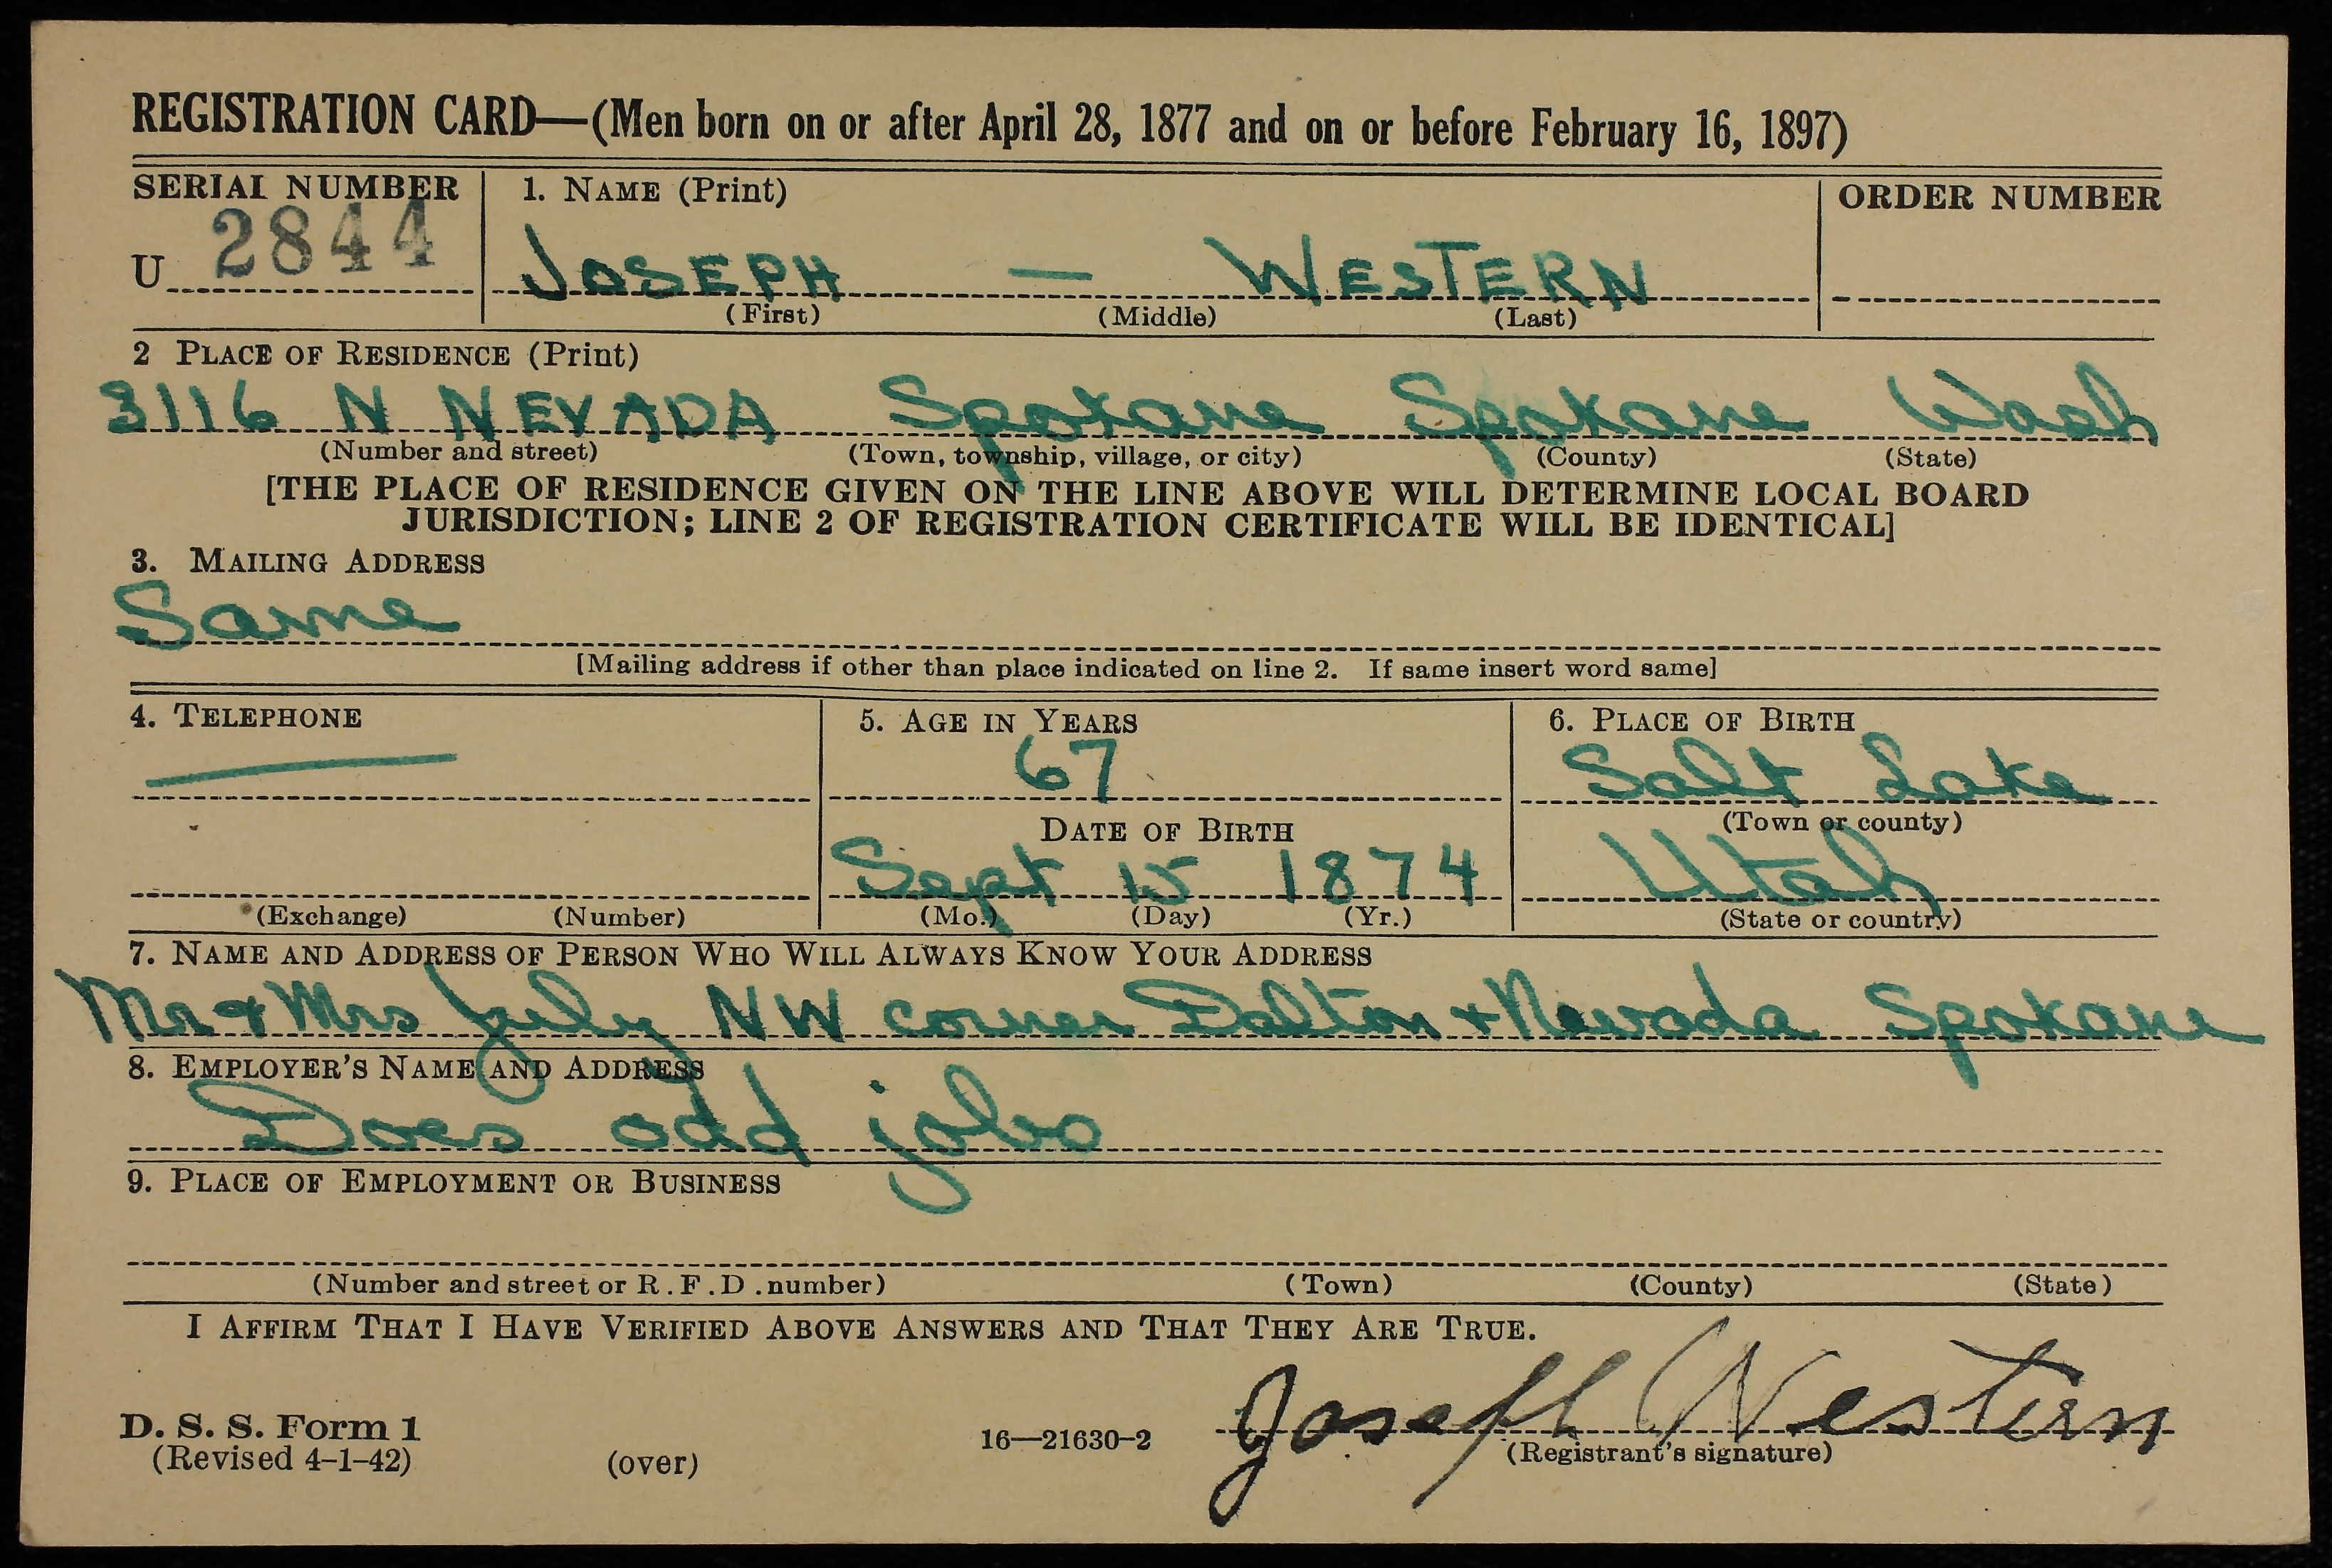 REGISTRATION CARD—(Men born on or after April 28, 1877 and on or before February 16, 1897)
SERIAL NUMBER 1. NAME (Print) ORDER NUMBER
U 2844 JOSEPH — WESTERN
(First) (Middle) (Last)
2 PLACE OF RESIDENCE (Print)
3116 N NEVADA Spokane Spokane Wash
(Number and street) (Town, township, village, or city) (County) (State)
[THE PLACE OF RESIDENCE GIVEN ON THE LINE ABOVE WILL DETERMINE LOCAL BOARD
JURISDICTION; LINE 2 OF REGISTRATION CERTIFICATE WILL BE IDENTICAL]
3. MAILING ADDRESS
Same
[Mailing address if other than place indicated on line 2. If same insert word same]
4. TELEPHONE 5. AGE IN YEARS 6. PLACE OF BIRTH
— 67 Salt Lake
DATE OF BIRTH (Town or county)
Sept 15 1874 Utah
(Exchange) (Number) (Mo.) (Day) (Yr.) (State or country)
7. NAME AND ADDRESS OF PERSON WHO WILL ALWAYS KNOW YOUR ADDRESS
Mr + Mrs NW corner Dalton + Nevada Spokane
8. EMPLOYER'S NAME AND ADDRESS
Does odd jobs
9. PLACE OF EMPLOYMENT OR BUSINESS
(Number and street or R.F.D. number) (Town) (County) (State)
I AFFIRM THAT I HAVE VERIFIED ABOVE ANSWERS AND THAT THEY ARE TRUE.
Joseph Western
D. S. S. Form 1
(Revised 4-1-42) (over) 16—21630-2 (Registrant's signature)